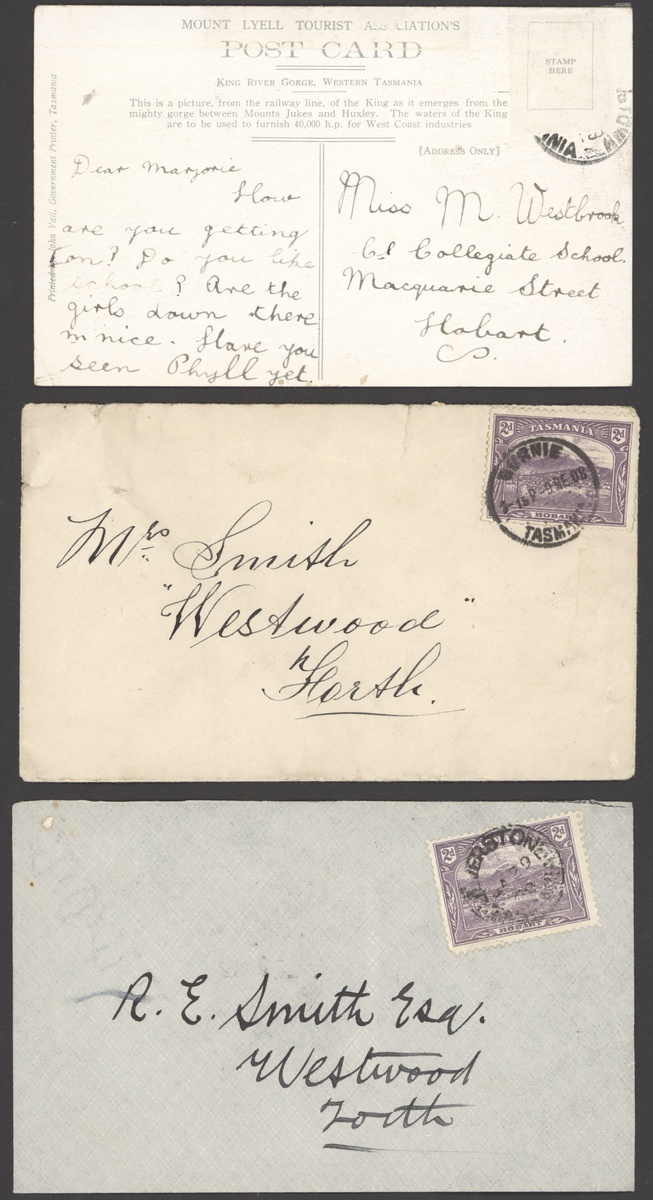 MOUNT LYELL TOURIST ASSOCIATION'S
POST CARD
KING RIVER GORGE, WESTERN TASMANIA
This is a picture, from the railway line, of the King as it emerges from the
mighty gorge between Mounts Jukes and Huxley. The waters of the King
are to be used to furnish 40,000 h.p. for West Coast industries
STAMP
HERE
[ADDRESS ONLY]
John Vail, Government Printer, Tasmania
Dear Marjorie
How
are you getting
on? Do you like
school? Are the
girls down there
nice. Have you
seen Phyll yet.
Miss M. Westbrook
Collegiate School.
Macquarie Street
Hobart.
TASMANIA
2d 2d
BURNIE
9 DE 08
TASMAN
HOBART
Mrs. Smith
"Westwood"
Forth.
2d 2d
VERSTONE
HOBART
R. E. Smith Esq.
Westwood
Forth